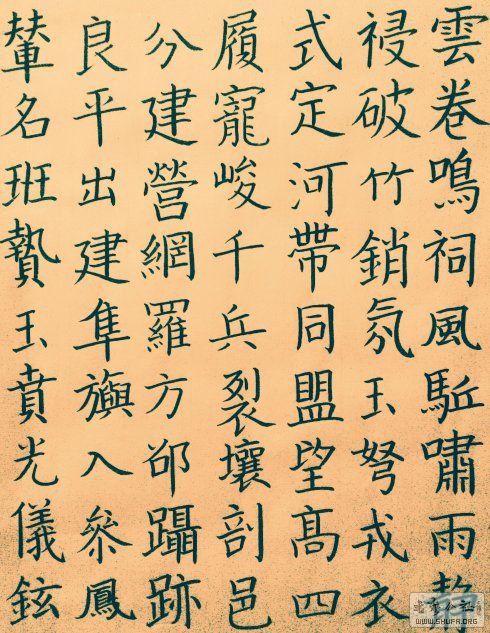 雲卷鳴祠風駈嘯雨
祲破竹銷氛玉弩戎衣
式定河帶同盟望髙四
履寵峻千兵裂壤剖邑
分建營網羅方邵躡跡
良平出建隼旟入叅鳳
輦名班贄玉賁光儀鉉
WWW.SHUFA.ORG